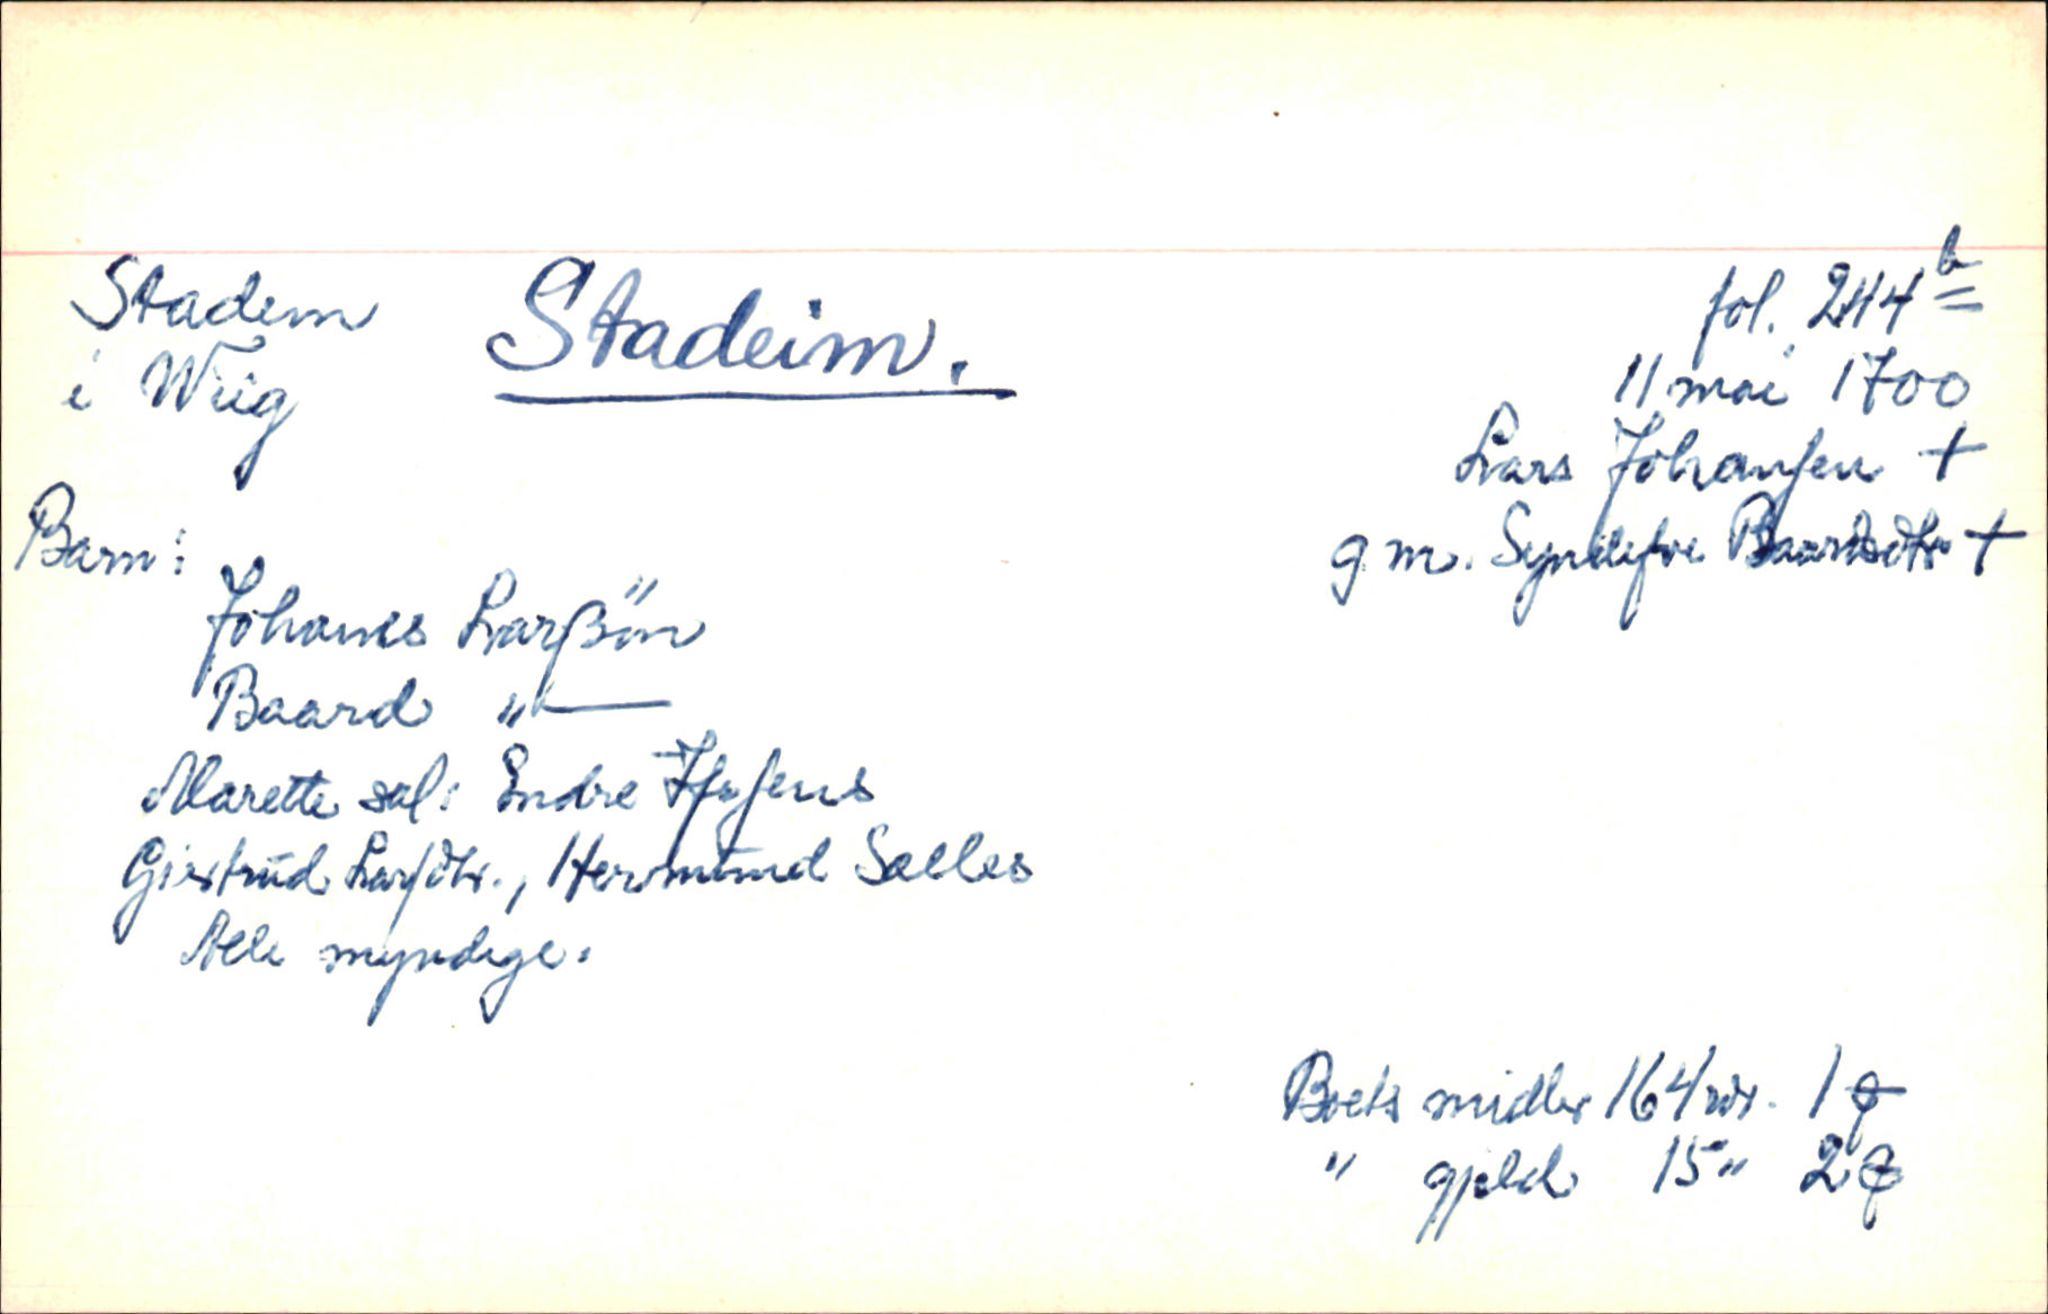 Stadem
i Wiig
Stadeim.
fol. 244 b
11 mai 1700
Lars Johansen +
g.m. Syndefve Baardsdtr +
Barn:
Johanes Larßön
Baard "—
Marette sal: Endre
Giertrud Larsdtr., Hermund Sælles
Alle myndige.
Boets midler 164 rdr. 1
" gjeld 15 " 2